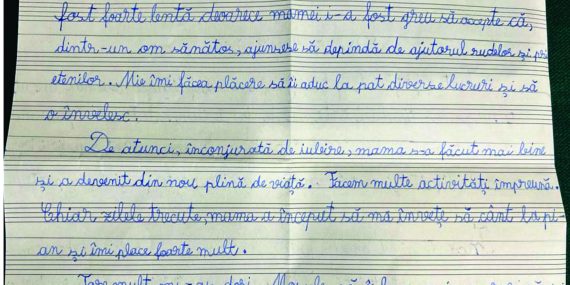 fost foarte lentă deoarece mamei i-a fost greu să accepte că,
dintr-un om sănătos, ajunsese să depindă de ajutorul rudelor și pri
etenilor. Mie îmi făcea plăcere să îi aduc la pat diverse lucruri și să
o învelesc.
De atunci, înconjurată de iubire, mama s-a făcut mai bine
și a devenit din nou plină de viață. Facem multe activități împreună.
Chiar zilele trecute, mama a început să mă învețe să cânt la pi-
an și îmi place foarte mult.